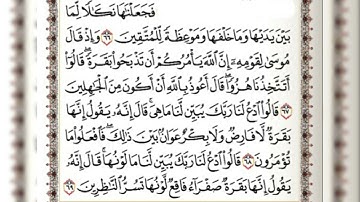 فَجَعَلْنَـٰهَا نَكَـٰلًا لِّمَا
بَيْنَ يَدَيْهَا وَمَا خَلْفَهَا وَمَوْعِظَةً لِّلْمُتَّقِينَ ٦٦ وَإِذْ قَالَ
مُوسَىٰ لِقَوْمِهِۦٓ إِنَّ ٱللَّهَ يَأْمُرُكُمْ أَن تَذْبَحُوا۟ بَقَرَةً ۖ قَالُوٓا۟
أَتَتَّخِذُنَا هُزُوًا ۖ قَالَ أَعُوذُ بِٱللَّهِ أَنْ أَكُونَ مِنَ ٱلْجَـٰهِلِينَ
٦٧ قَالُوا۟ ٱدْعُ لَنَا رَبَّكَ يُبَيِّن لَّنَا مَا هِىَ ۚ قَالَ إِنَّهُۥ يَقُولُ إِنَّهَا
بَقَرَةٌ لَّا فَارِضٌ وَلَا بِكْرٌ عَوَانٌۢ بَيْنَ ذَٰلِكَ ۖ فَٱفْعَلُوا۟ مَا
تُؤْمَرُونَ ٦٨ قَالُوا۟ ٱدْعُ لَنَا رَبَّكَ يُبَيِّن لَّنَا مَا لَوْنُهَا ۚ قَالَ إِنَّهُۥ
يَقُولُ إِنَّهَا بَقَرَةٌ صَفْرَآءُ فَاقِعٌ لَّوْنُهَا تَسُرُّ ٱلنَّـٰظِرِينَ ٦٩